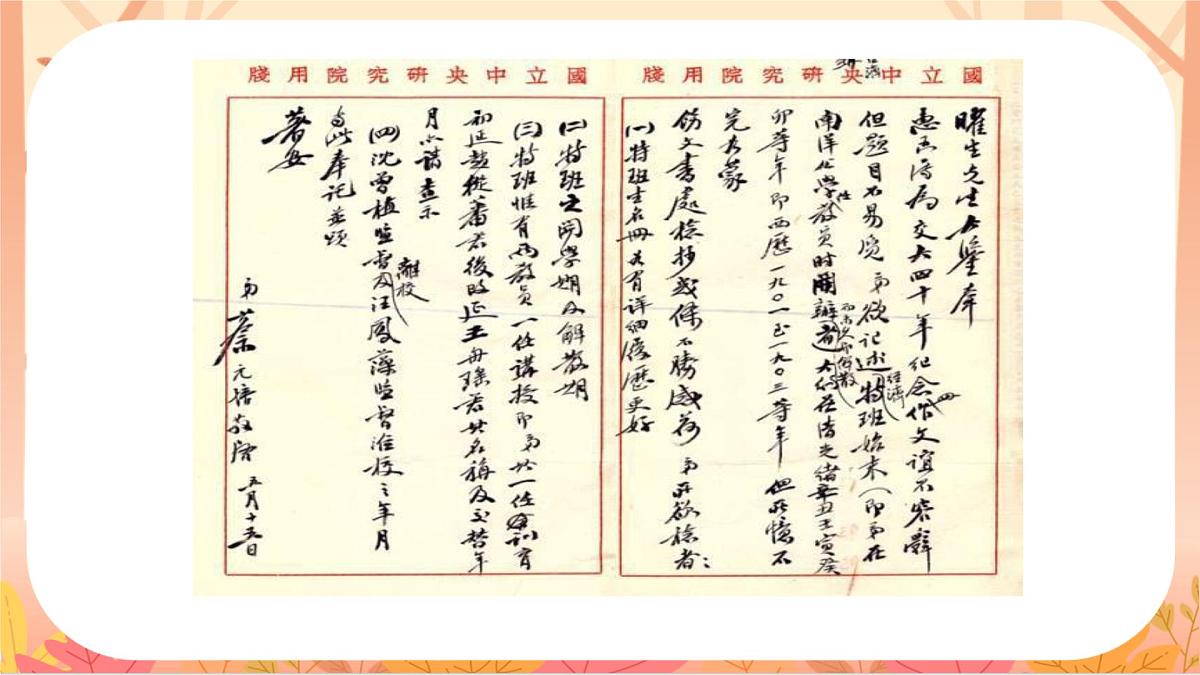 國立中央研究院用牋
曜生先生大鑒奉
惠函済為交大四十年紀念作文誼不容辭
但題目不易覓弟欲記述特班始末(即弟在
經濟
南洋公學教員時開辦者大約在清光緒辛丑壬寅癸
卯等年即西歷一九〇一至一九〇三等年但所憶不
完大蒙
飭文書處檢抄或條不勝感荷弟所欲檢者:
(一)特班生名冊如有详細履歷更好
國立中央研究院用牋
(二)特班之開學期及解散期
(三)特班惟有兩教員一任講授即弟其一任
初延趙從蕃君後改延王舟瑤君其名稱及交替年
月亦請查示
(四)沈曾植監督及汪鳳藻監督淮校之年月
離校
奉託並頌
著安
弟
蔡元培敬啓
五月十五日